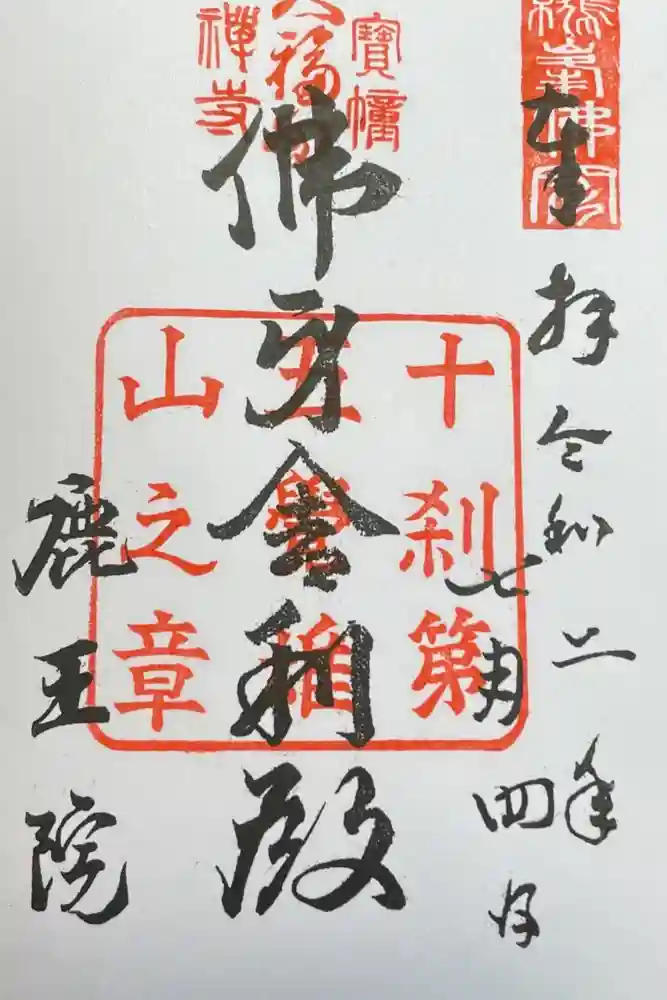 奉拝 令和二年
七月四日
佛牙舎利殿
鹿王院
十刹第
五覺雄
山之章
寶幢
禪寺